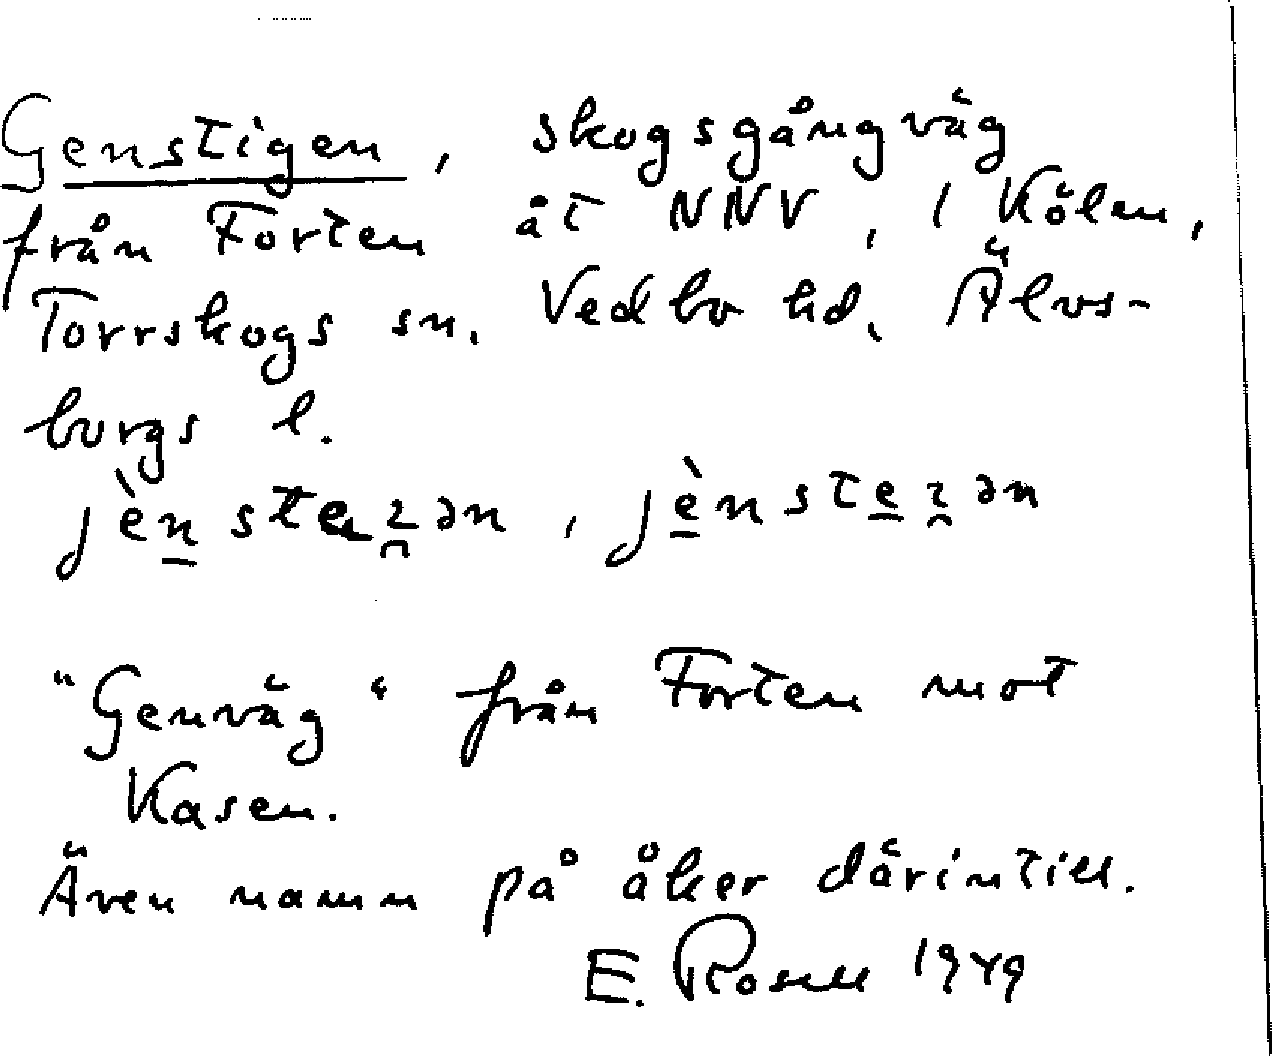 Genstigen, skogsgångväg
från Forten åt NNV, i Kölen,
Torrskogs sn. Vedbo hd. Älvs-
borgs l.
jènsteɀən, jènsteɀən
"Genväg" från Forten mot
Kasen.
Även namn på åker därintill.
E. Rosell 1949